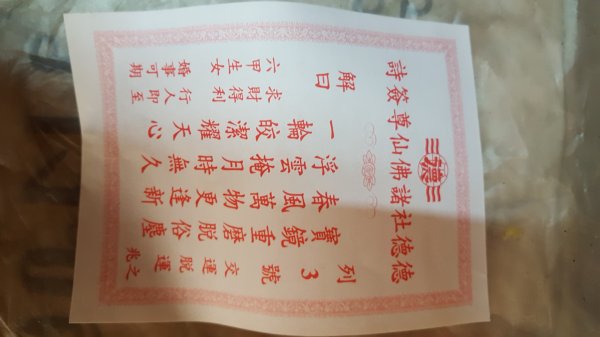 德
德德社諸佛仙尊簽詩
列3號
交運脫運之兆
寶鏡重磨脫俗塵
春風萬物更逢新
浮雲掩月時無久
一輪皎潔耀天心
解曰
求財得利
行人即至
六甲生女
婚事可期